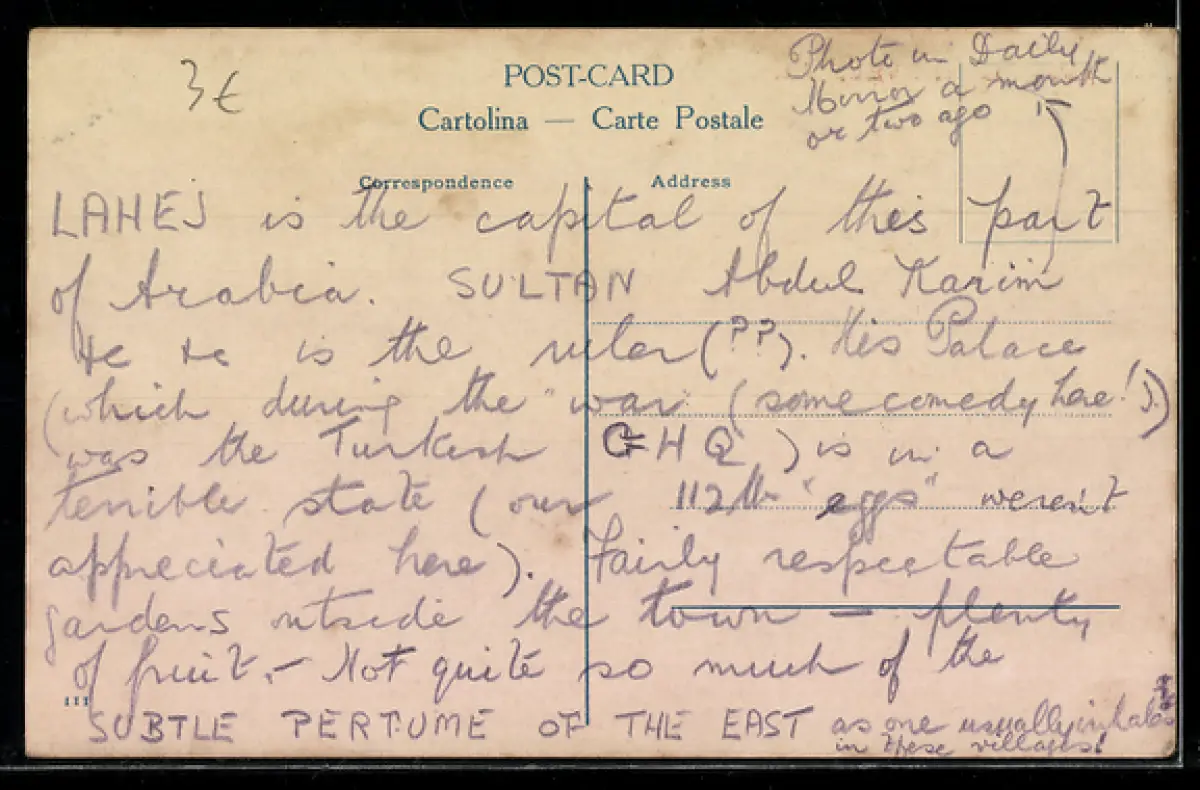 3€
POST-CARD
Cartolina — Carte Postale
Photo in Daily
Mirror a month
or two ago
Correspondence
Address
LAHEJ is the capital of this part
of Arabia. SULTAN Abdul Karim
&c &c is the ruler (??). His Palace
(which during the "war" (some comedy here!)
was the Turkish GHQ) is in a
terrible state (our 112 lb "eggs" weren't
appreciated here). Fairly respectable
gardens outside the town — plenty
of fruit. — Not quite so much of the
111
SUBTLE PERFUME OF THE EAST as one usually inhales
in these villages!